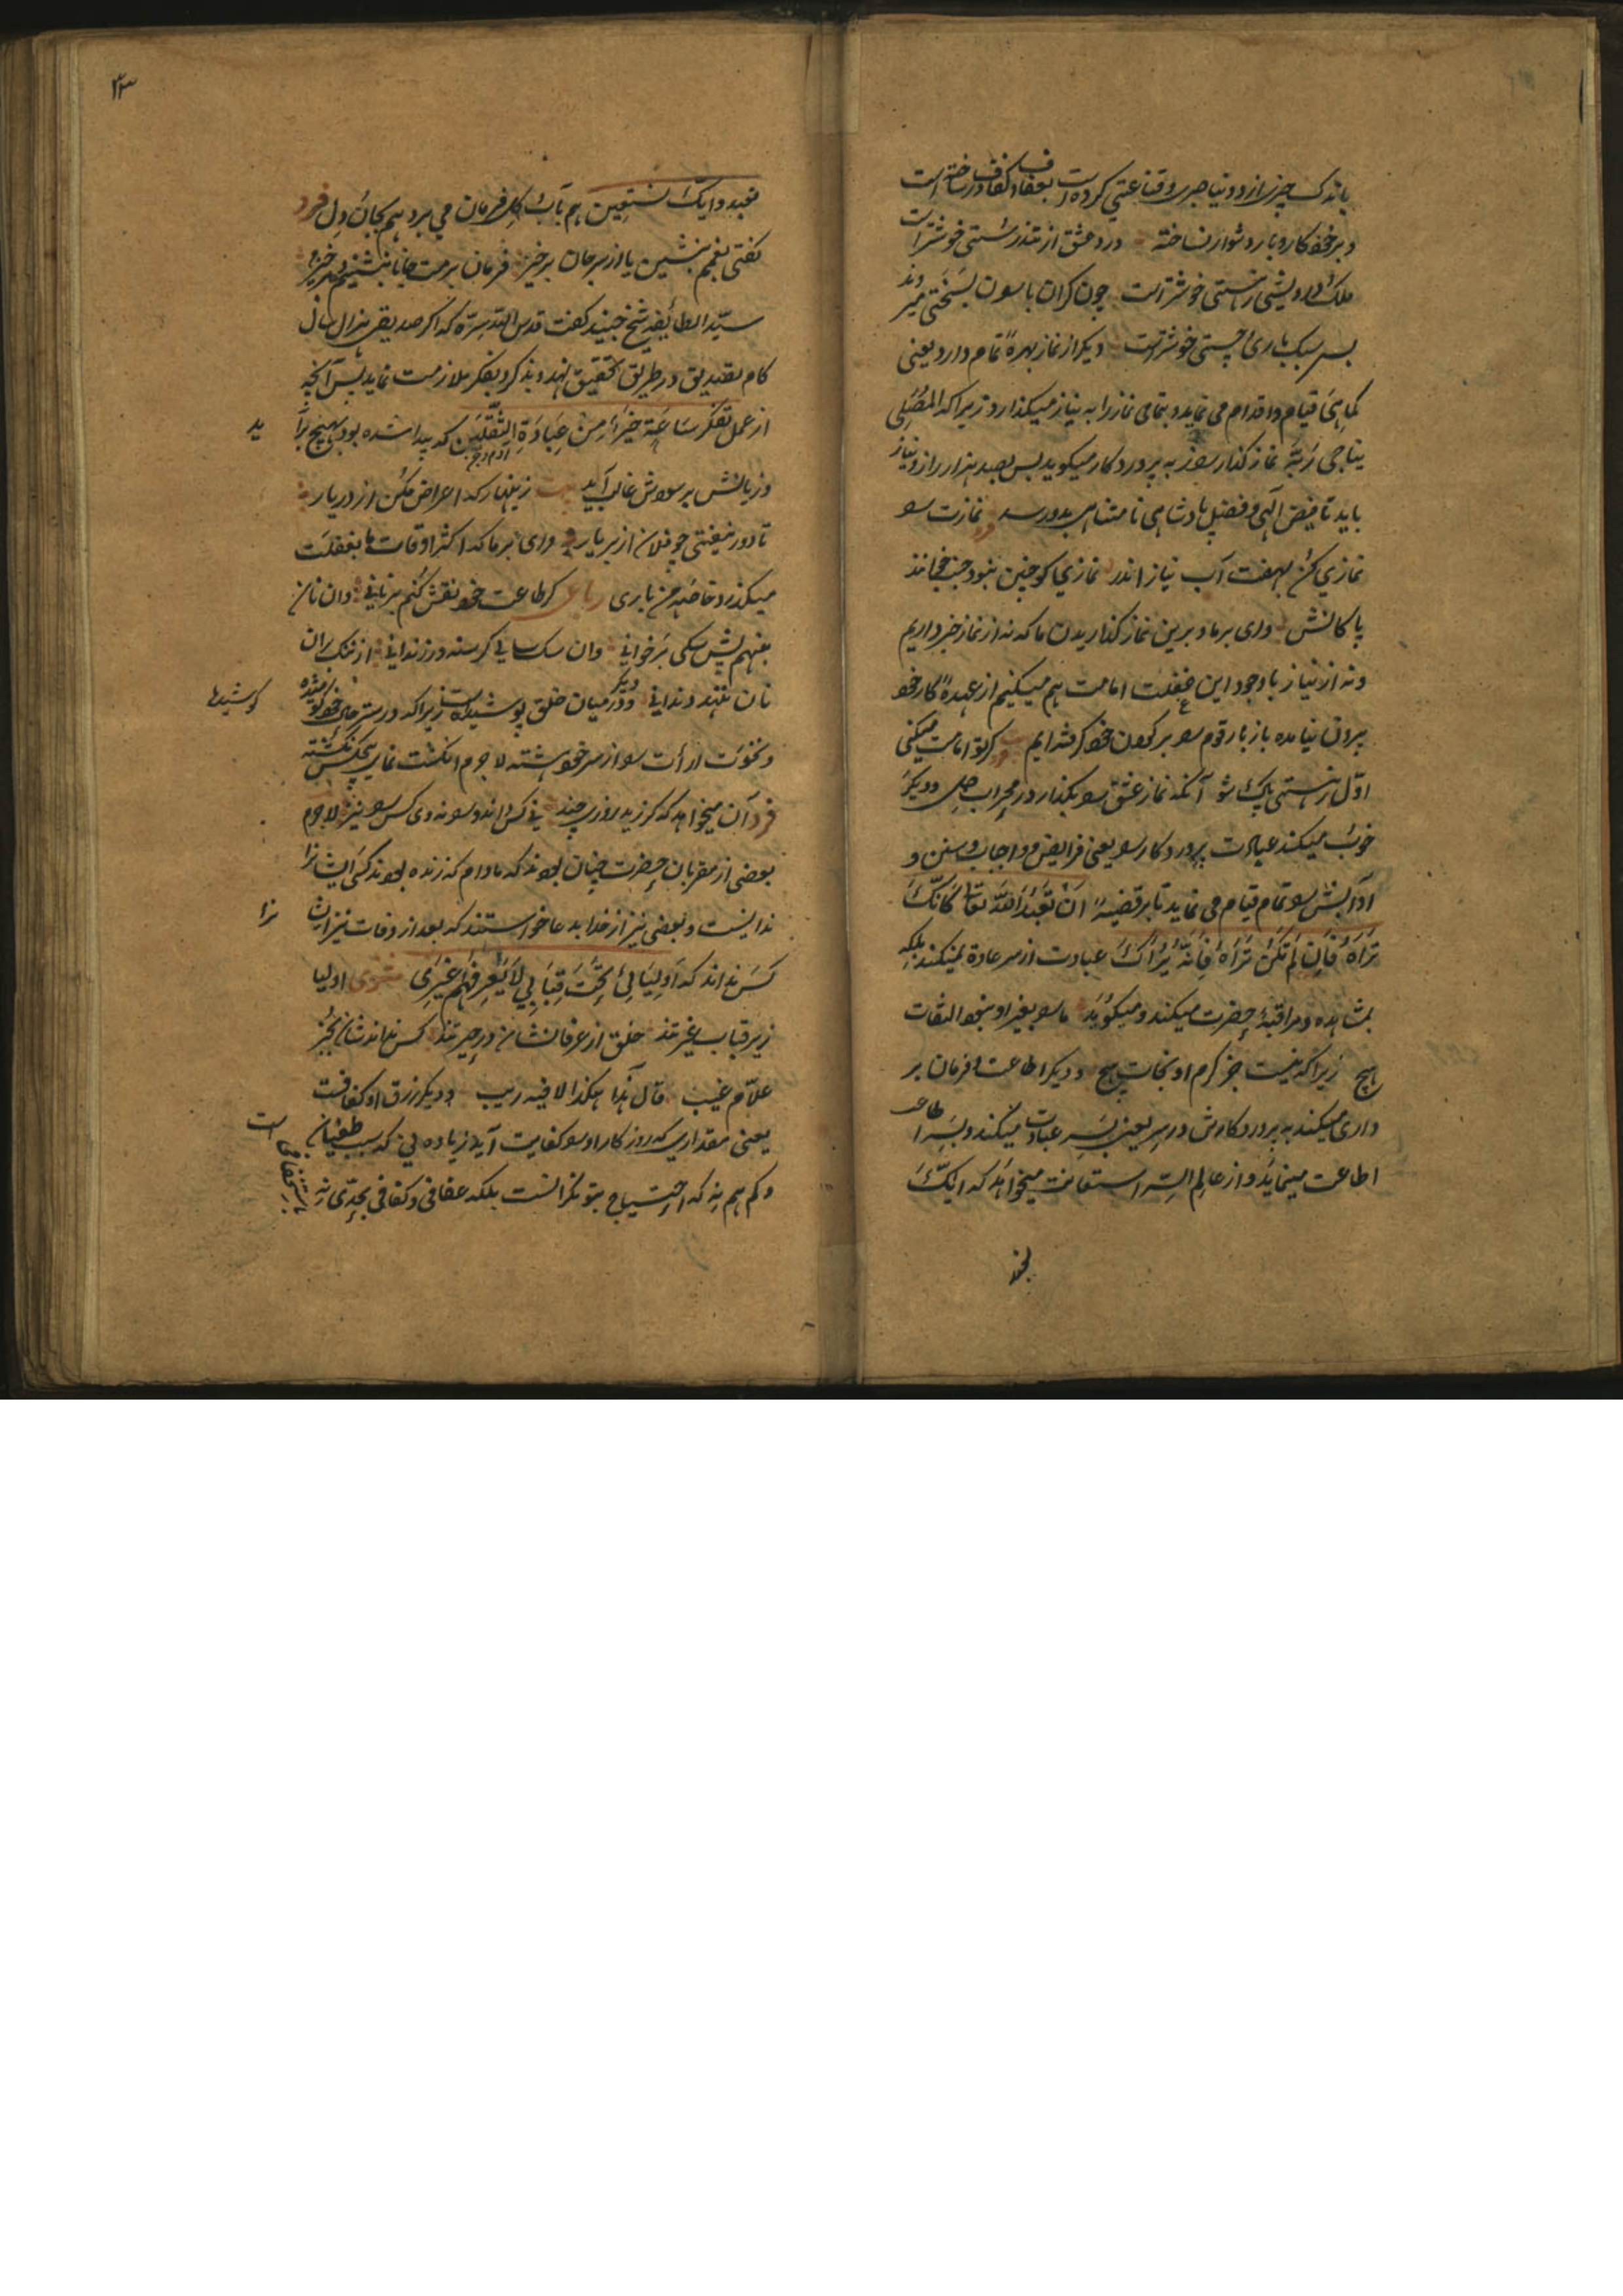 باندک چیز از دنیا صبر و قناعتی کرده است بعفاف و کفاف در ساخته است
و بر خود کار و بار دشوار نساخته درد عشق از تندرستی خوشتر است
ملک درویشی ز هستی خوشتر است چون گران باسون بسختی میروند
بس سبک باری و چستی خوشتر است دیگر از نماز بهرهٔ تمام دارد یعنی
کما هی قیام و اقدام می نماید و بتمامی نماز را به نیاز میگذارد زیرا که المصلی
یناجی ربه نماز گذار سوز به پروردگار میگوید پس بصد هزار راز و نیاز
باید تا فیض الهی و فضل پادشاهی نامتناهی بدو رسد نمازت سو
نمازی کن بهفت آب نیاز اندر نمازی کو چنین نبود جنب خوانند
پاکانش وای بر ما و برین نماز گذاریدن ما که نه از نماز خبر داریم
و نه از نیاز با وجود این غفلت امامت هم میکنیم از عهدهٔ کار خود
برون نیامده باز بار قوم سو بر گردن خود گرفته ایم گر تو امامت میکنی
اول ز هستی پاک شو آنگه نماز عشق سو بگذار در محراب دل و دیگر
خوب میکند عبادت پروردگار سو یعنی فرایض و واجبات و سنن و
آدابش سو تمام قیام می نماید تا بر قضیهٔ ان تعبد الله تعالی کانک
تراه فان لم تکن تراه فانه یراک عبادت از سر عادة نمیکند بلکه
بمشاهده و مراقبهٔ حضرت میکند و میگوید ما سو بغیر او نبود التفات
هیچ زیرا که نیست جز کرم او نجات هیچ و دیگر اطاعت و فرمان بر
داری میکند به پروردگارش در سر یعنی بسر عبادت میکند و بسر اطاعت
اطاعت مینماید و از عالم السر استعانت میخواهد که ایاک
نعبد و ایاک نستعین هم بآب و گل فرمان می برد هم بجان و دل فرد
گفتی بغمم بنشین یا از سر جان برخیز فرمان برمت جانا بنشینم و برخیزم
سید الطائفه شیخ جنید گفت قدس الله سره که اگر صدیقی هزار سال
گام بصدیق در طریق تحقیق نهد و بذکر و بفکر ملازمت نماید پس آنچه
از عمل تفکر ساعة خیر من عبادة الثقلین که پیدا شده بود بهیچ برآید
و زیانش بر سودش غالب آید زینهار که اعراض مکن از در یار
تا دور نیفتی چو فلان از بر یار وای بر ما که اکثر اوقات ما بغفلت
میگذرد خاصه من باری رباعی گر طاعت خود نقش کنم بر نانی وان نان
بنهم پیش سگی بر خوانی وان سگ سالی گرسنه در زندانی از ننگ بران
نان ننهد دندانی و دیگر در میان خلق پوشیده است زیرا که در ستر حال خود کوشیده
و نخوت ارأت سو از سر خود هشته لاجرم انگشت نمای هیچکس نگشته
فرد آن میخواهد که گر زید روزی چند نی کس داند و سو نه وی کس سو نیز لاجرم
بعضی از مقربان حضرت چنان بودند که مادام که زنده بودند کسی ایشانرا
ندانست و بعضی نیز از خدا بدعا خواستند که بعد از وفات نیز ایشانرا
کس نداند که اولیائی تحت قبابی لا یعرفهم غیری مثنوی اولیا
زیر قباب غیرتند خلق از عرفانشان در حیرتند کس نداند شان بجز
علام غیب قال هذا هکذا لا فیه ریب و دیگر رزق او کفافست
یعنی مقداری که روزگار او سو کفایت آید زیاده نی که سبب طغیان است
و کم هم نه که احتیاج بتوانگرانست بلکه عفافی و کفافی بحدی نه